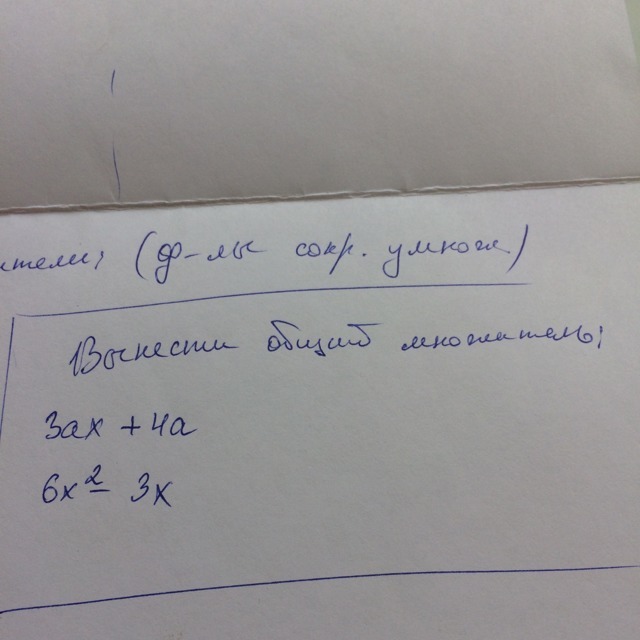 ители; (ф-лы сокр. умнож)
Вынести общий множитель;
3ax + 4a
6x² - 3x